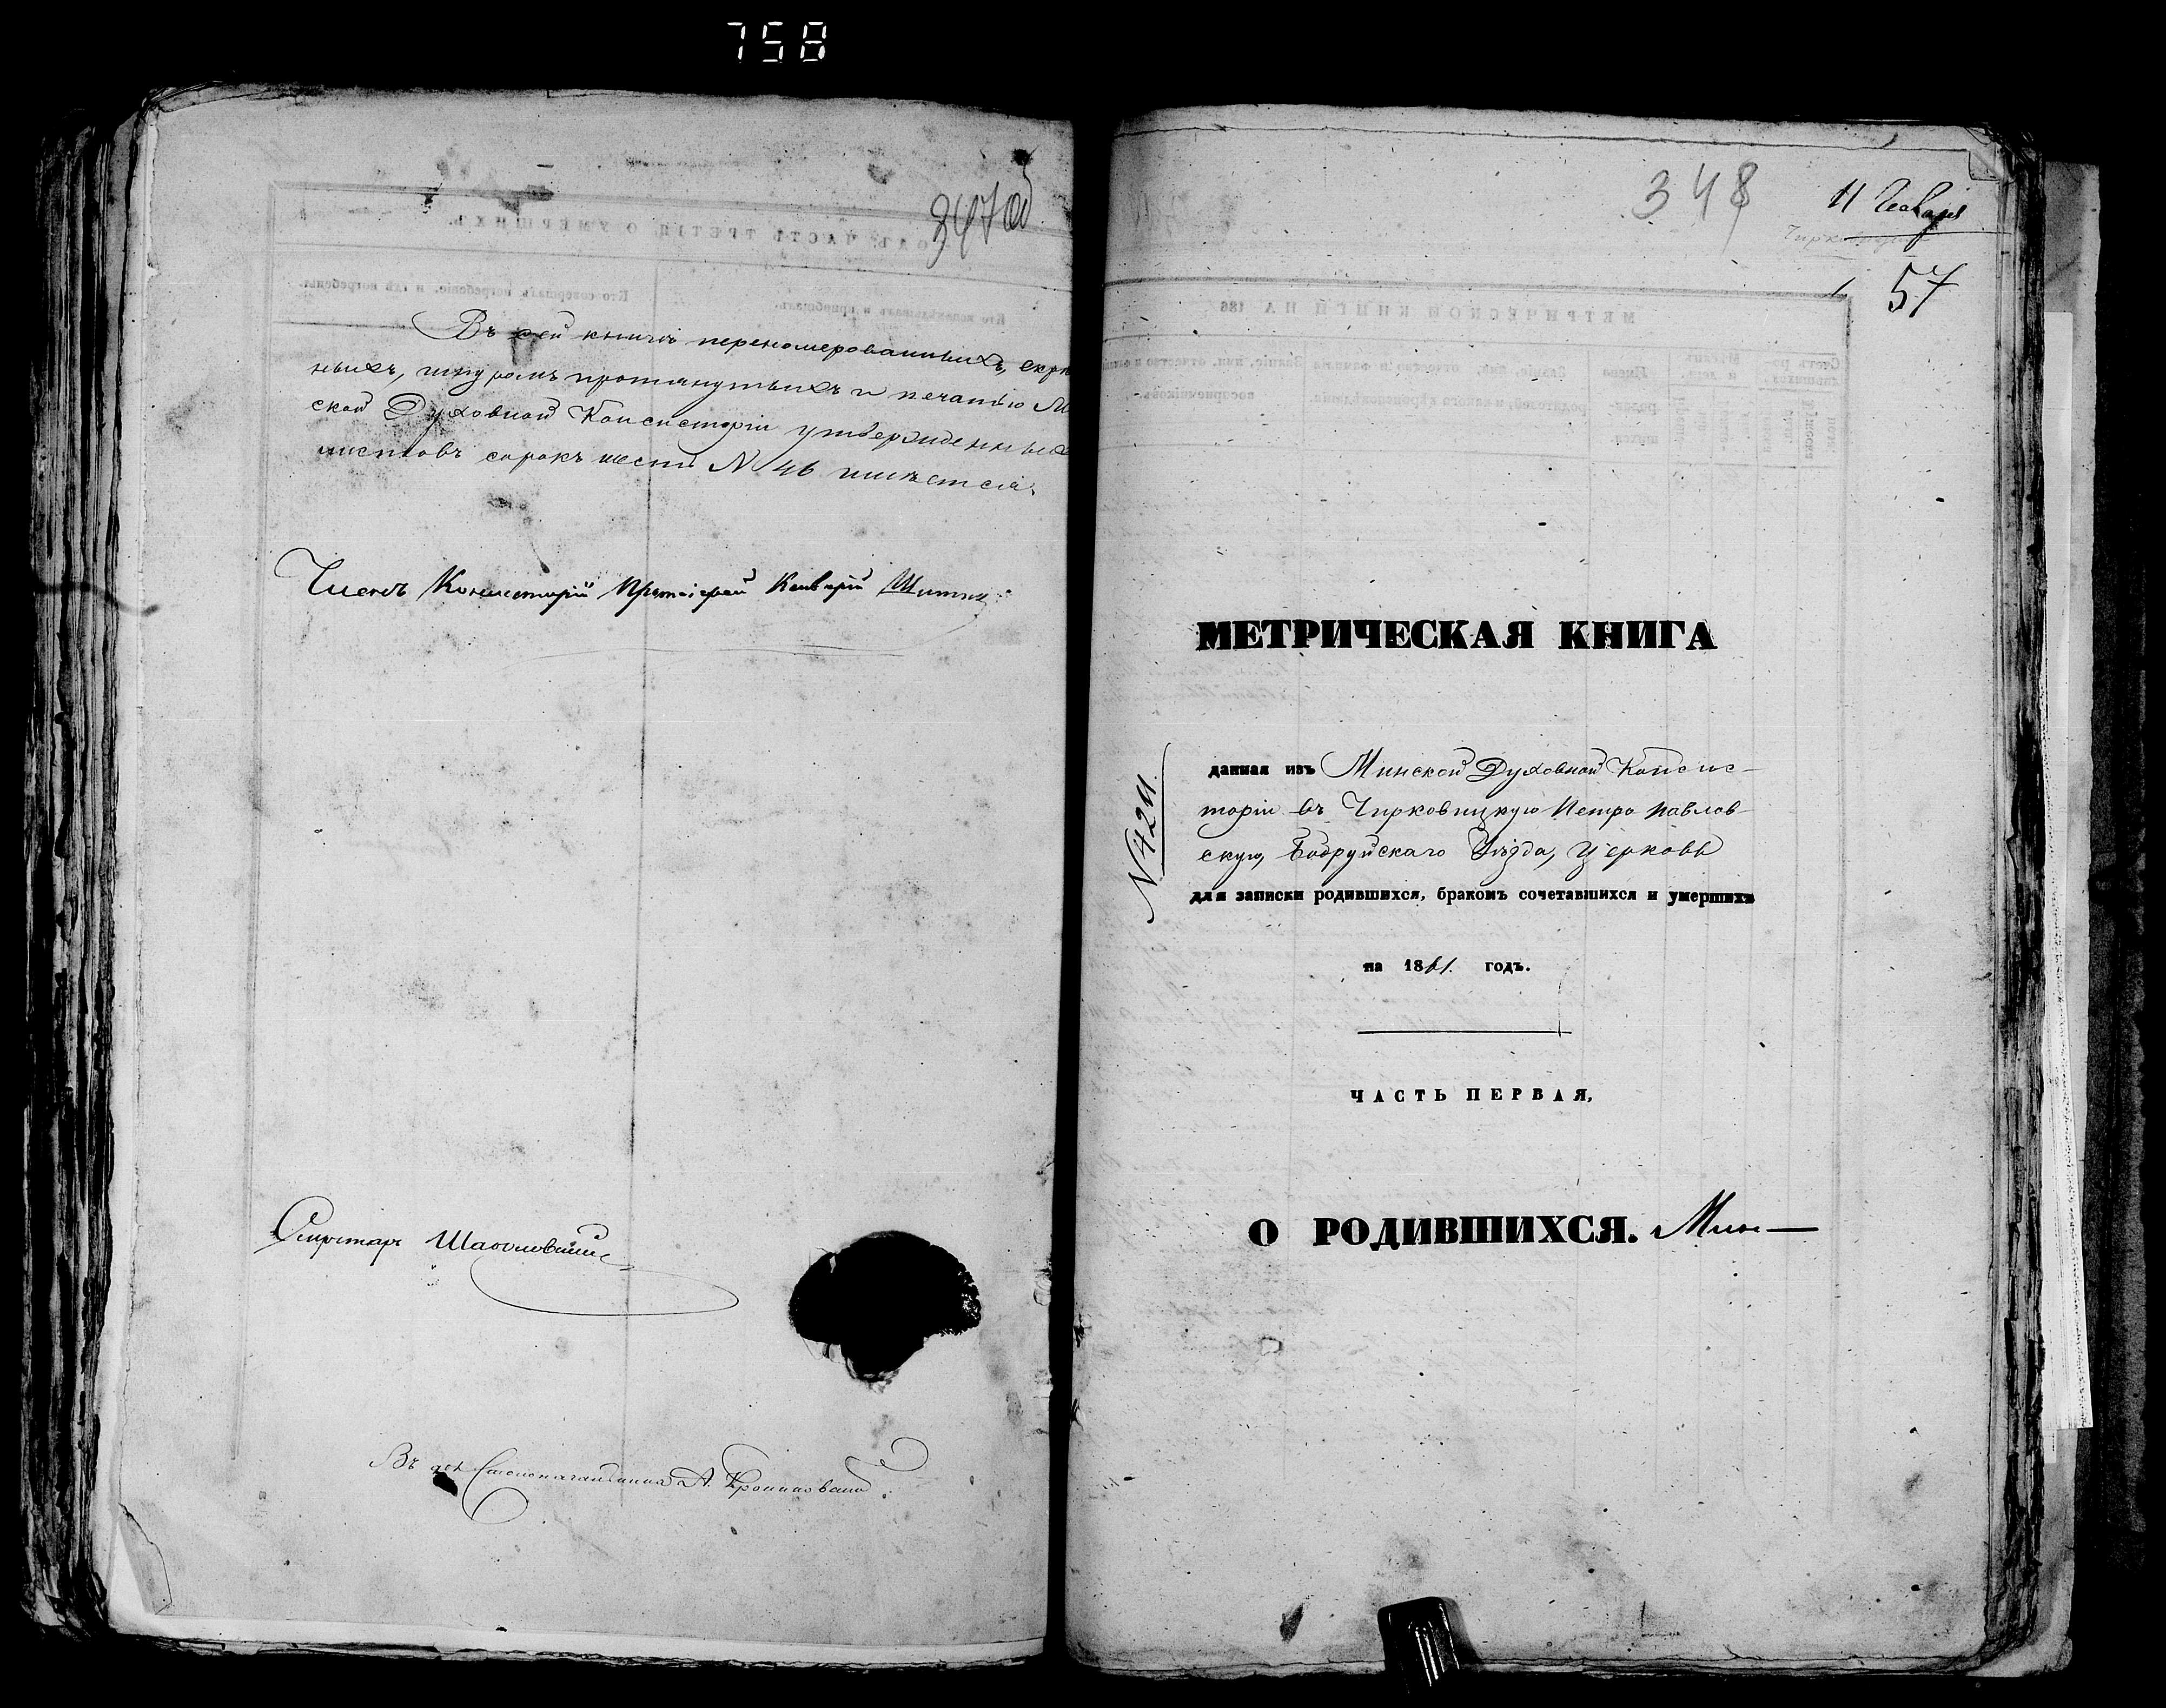 758
347 об
Въ сей книгѣ перенумерованныхъ, скрѣ
ныхъ, шнуромъ протянутыхъ и печатью М
ской Духовной Консисторіи утвержденныхъ
листовъ сорокъ шесть № 46 имѣется.
Членъ Консисторіи Протоіерей
Секретарь
Въ дол. Столоначальника А.
348
11
57
МЕТРИЧЕСКАЯ КНИГА
№ 4211.
данная изъ Минской Духовной Консис-
торіи въ Чирковицкую Петро Павлов-
скую, Бобруйскаго Уѣзда, Церковь
для записки родившихся, бракомъ сочетавшихся и умершихъ
на 1861. годъ.
ЧАСТЬ ПЕРВАЯ,
О РОДИВШИХСЯ. Мин—